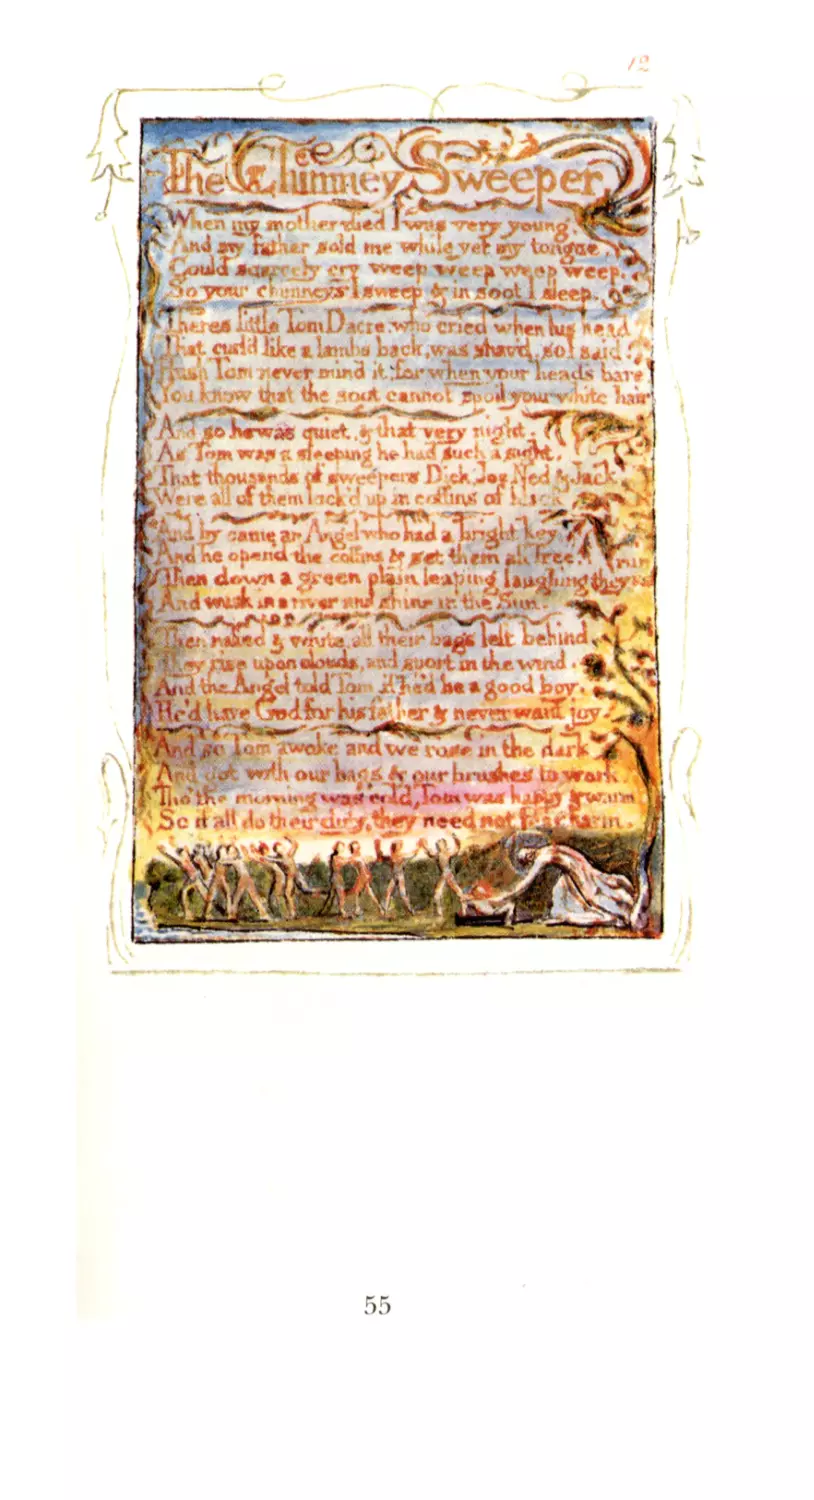 12
The Chimney Sweeper
When my mother died I was very young,
And my father sold me while yet my tongue,
Could scarcely cry weep weep weep weep.
So your chimneys I sweep & in soot I sleep.
Theres little Tom Dacre, who cried when his head
That curl'd like a lambs back, was shav'd, so I said.
Hush Tom never mind it, for when your heads bare
You know that the soot cannot spoil your white hair
And so he was quiet, & that very night,
As Tom was a sleeping he had such a sight,
That thousands of sweepers Dick, Joe, Ned & Jack
Were all of them lock'd up in coffins of black,
And by came an Angel who had a bright key,
And he open'd the coffins & set them all free.
run
Then down a green plain leaping laughing they
And wash in a river and shine in the Sun.
Then naked & white, all their bags left behind,
They rise upon clouds, and sport in the wind.
And the Angel told Tom if he'd be a good boy,
He'd have God for his father & never want joy.
And so Tom awoke and we rose in the dark
And got with our bags & our brushes to work.
Tho' the morning was cold, Tom was happy & warm
So if all do their duty, they need not fear harm.
55